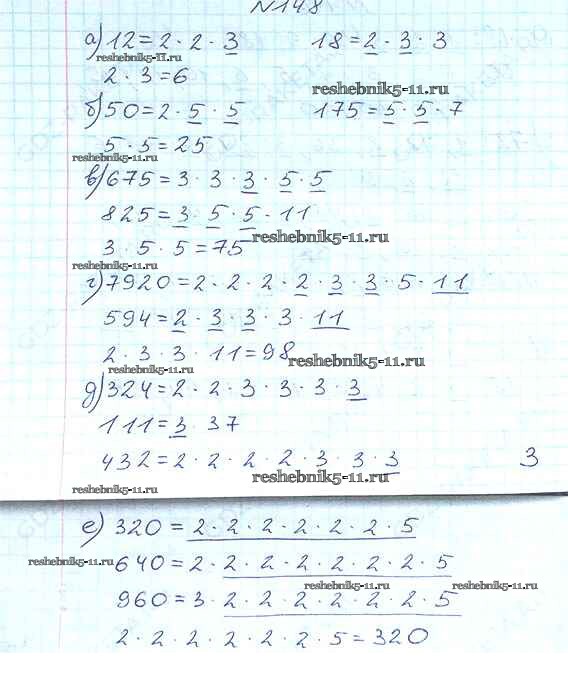 №148
а) 12 = 2 · 2 · 3 18 = 2 · 3 · 3
reshebnik5-11.ru
2 · 3 = 6 reshebnik5-11.ru
б) 50 = 2 · 5 · 5 175 = 5 · 5 · 7
5 · 5 = 25
reshebnik5-11.ru
в) 675 = 3 · 3 · 3 · 5 · 5
825 = 3 · 5 · 5 · 11
reshebnik5-11.ru
3 · 5 · 5 = 75
reshebnik5-11.ru
г) 7920 = 2 · 2 · 2 · 2 · 3 · 3 · 5 · 11
594 = 2 · 3 · 3 · 3 · 11
2 · 3 · 3 · 11 = 98 reshebnik5-11.ru
reshebnik5-11.ru
д) 324 = 2 · 2 · 3 · 3 · 3 · 3
111 = 3 · 37
432 = 2 · 2 · 2 · 2 · 3 · 3 · 3 3
reshebnik5-11.ru reshebnik5-11.ru
е) 320 = 2 · 2 · 2 · 2 · 2 · 2 · 5
reshebnik5-11.ru 640 = 2 · 2 · 2 · 2 · 2 · 2 · 2 · 5
reshebnik5-11.ru reshebnik5-11.ru
960 = 3 · 2 · 2 · 2 · 2 · 2 · 2 · 5
2 · 2 · 2 · 2 · 2 · 2 · 5 = 320